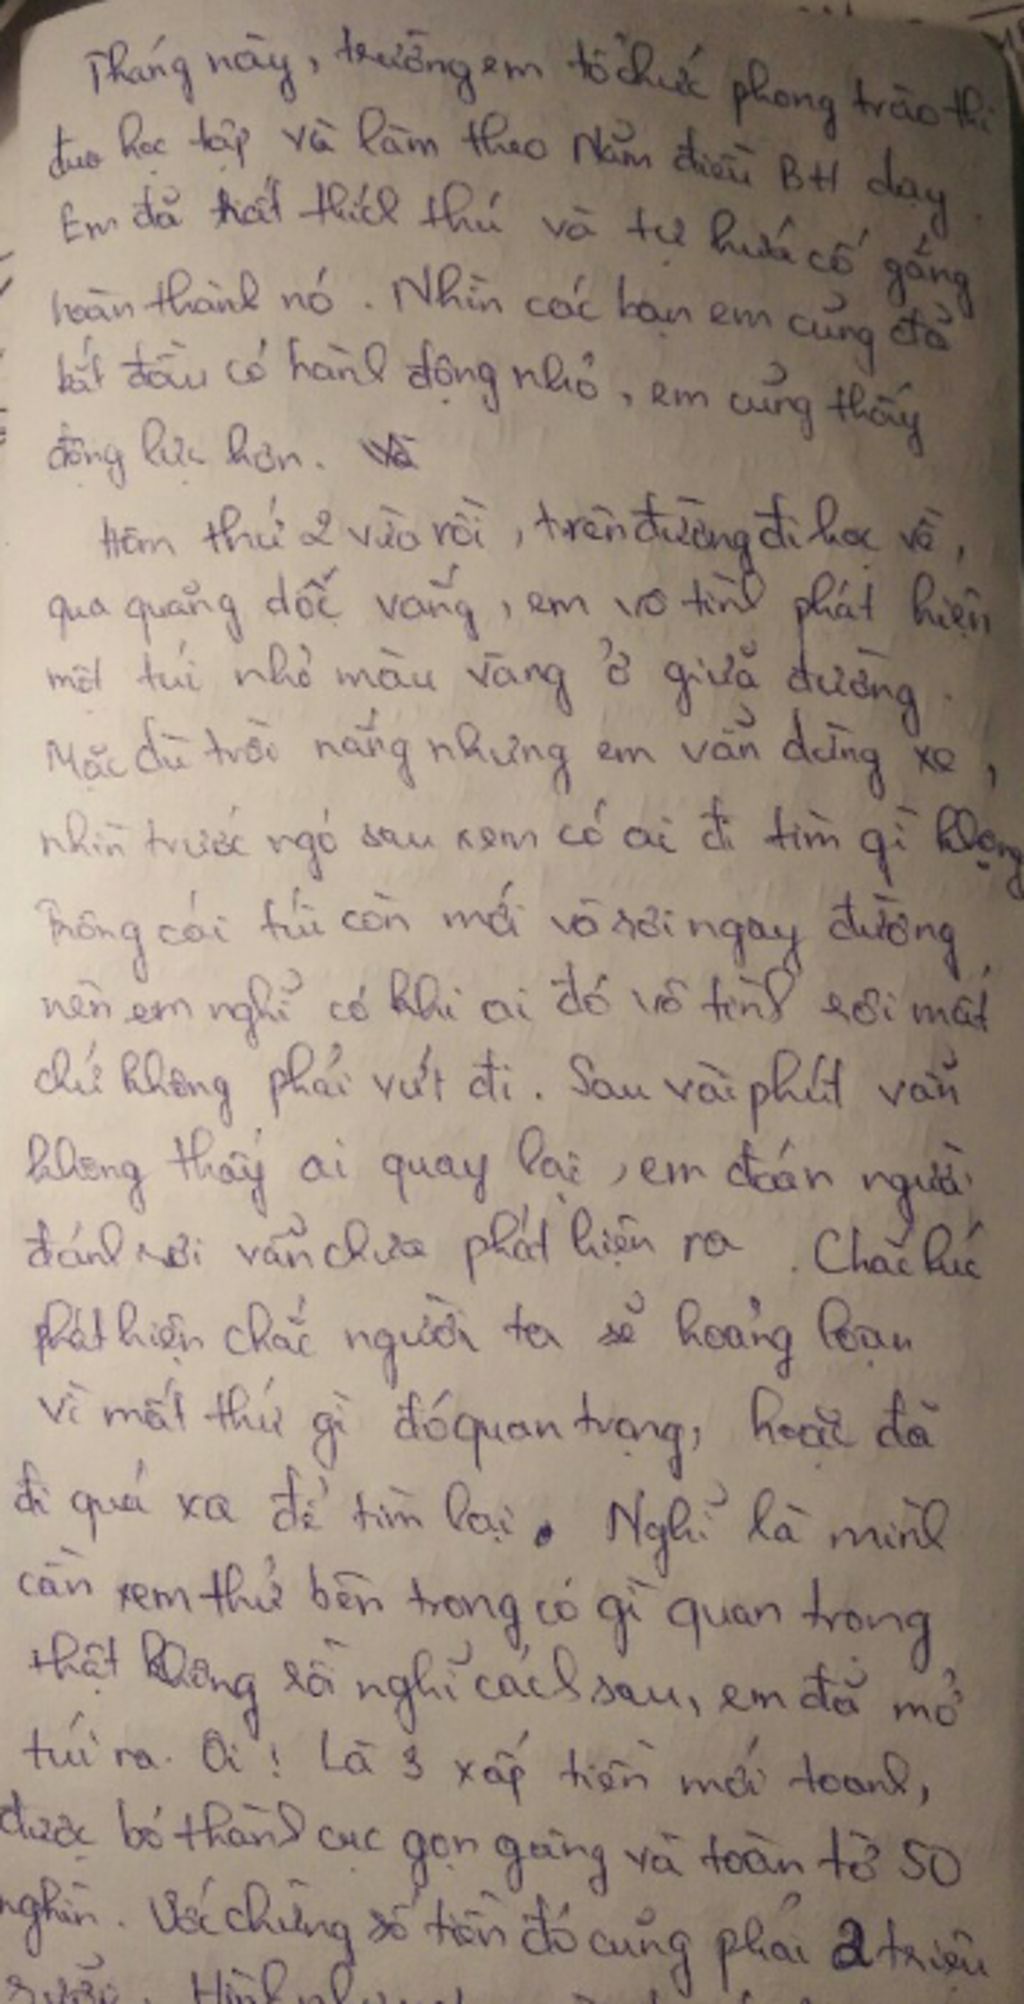 Tháng này, trường em tổ chức phong trào thi
đua học tập và làm theo Năm điều BH dạy.
Em đã rất thích thú và tự hứa cố gắng
hoàn thành nó. Nhìn các bạn em cũng đã
bắt đầu có hành động nhỏ, em cũng thấy
động lực hơn. Và
Hôm thứ 2 vừa rồi, trên đường đi học về,
qua quãng dốc vắng, em vô tình phát hiện
một túi nhỏ màu vàng ở giữa đường.
Mặc dù trời nắng nhưng em vẫn dừng xe,
nhìn trước ngó sau xem có ai đi tìm gì không
Trông cái túi còn mới và rơi ngay đường
nên em nghĩ có khi ai đó vô tình rơi mất
chứ không phải vứt đi. Sau vài phút vẫn
không thấy ai quay lại, em đoán người
đánh rơi vẫn chưa phát hiện ra. Chắc lúc
phát hiện chắc người ta sẽ hoảng loạn
vì mất thứ gì đó quan trọng, hoặc đã
đi quá xa để tìm lại. Nghĩ là mình
cần xem thử bên trong có gì quan trọng
thật không rồi nghĩ cách sau, em đã mở
túi ra. Ôi! Là 3 xấp tiền mới toanh,
được bó thành cục gọn gàng và toàn tờ 50
nghìn. Với chừng số tiền đó cũng phải 2 triệu
rưỡi.